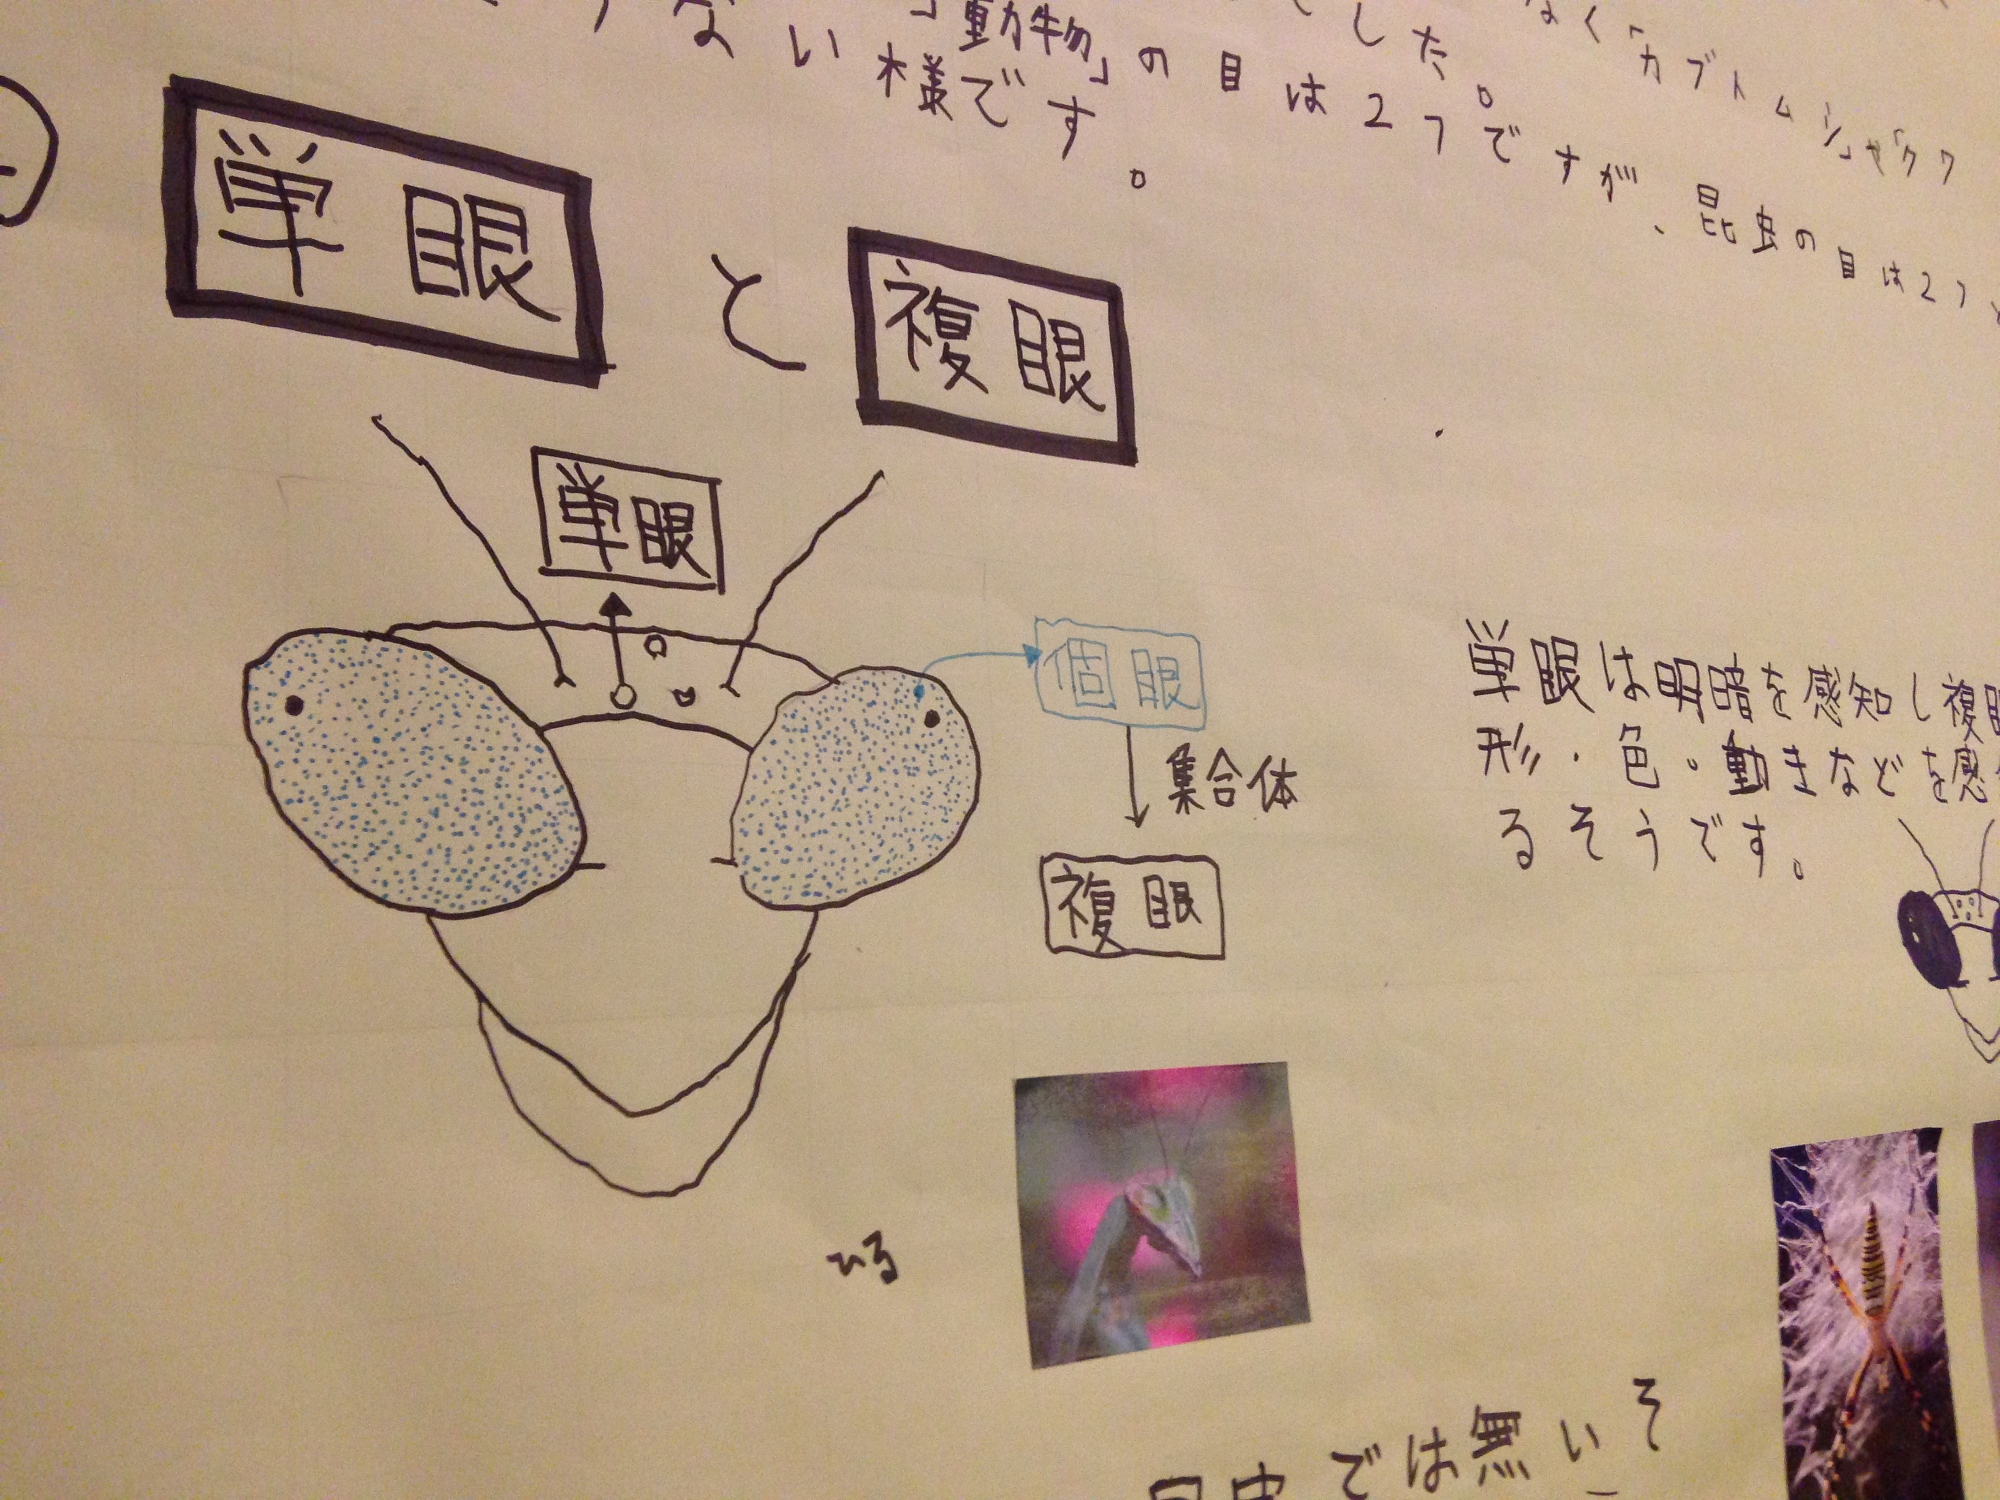 なく「カブトムシ」や「クワ
した。
「動物」の目は2つですが、昆虫の目は2つ
ない様です。
単眼と複眼
単眼
個眼
集合体
複眼
単眼は明暗を感知し複眼
形・色・動きなどを感
るそうです。
では無いそ